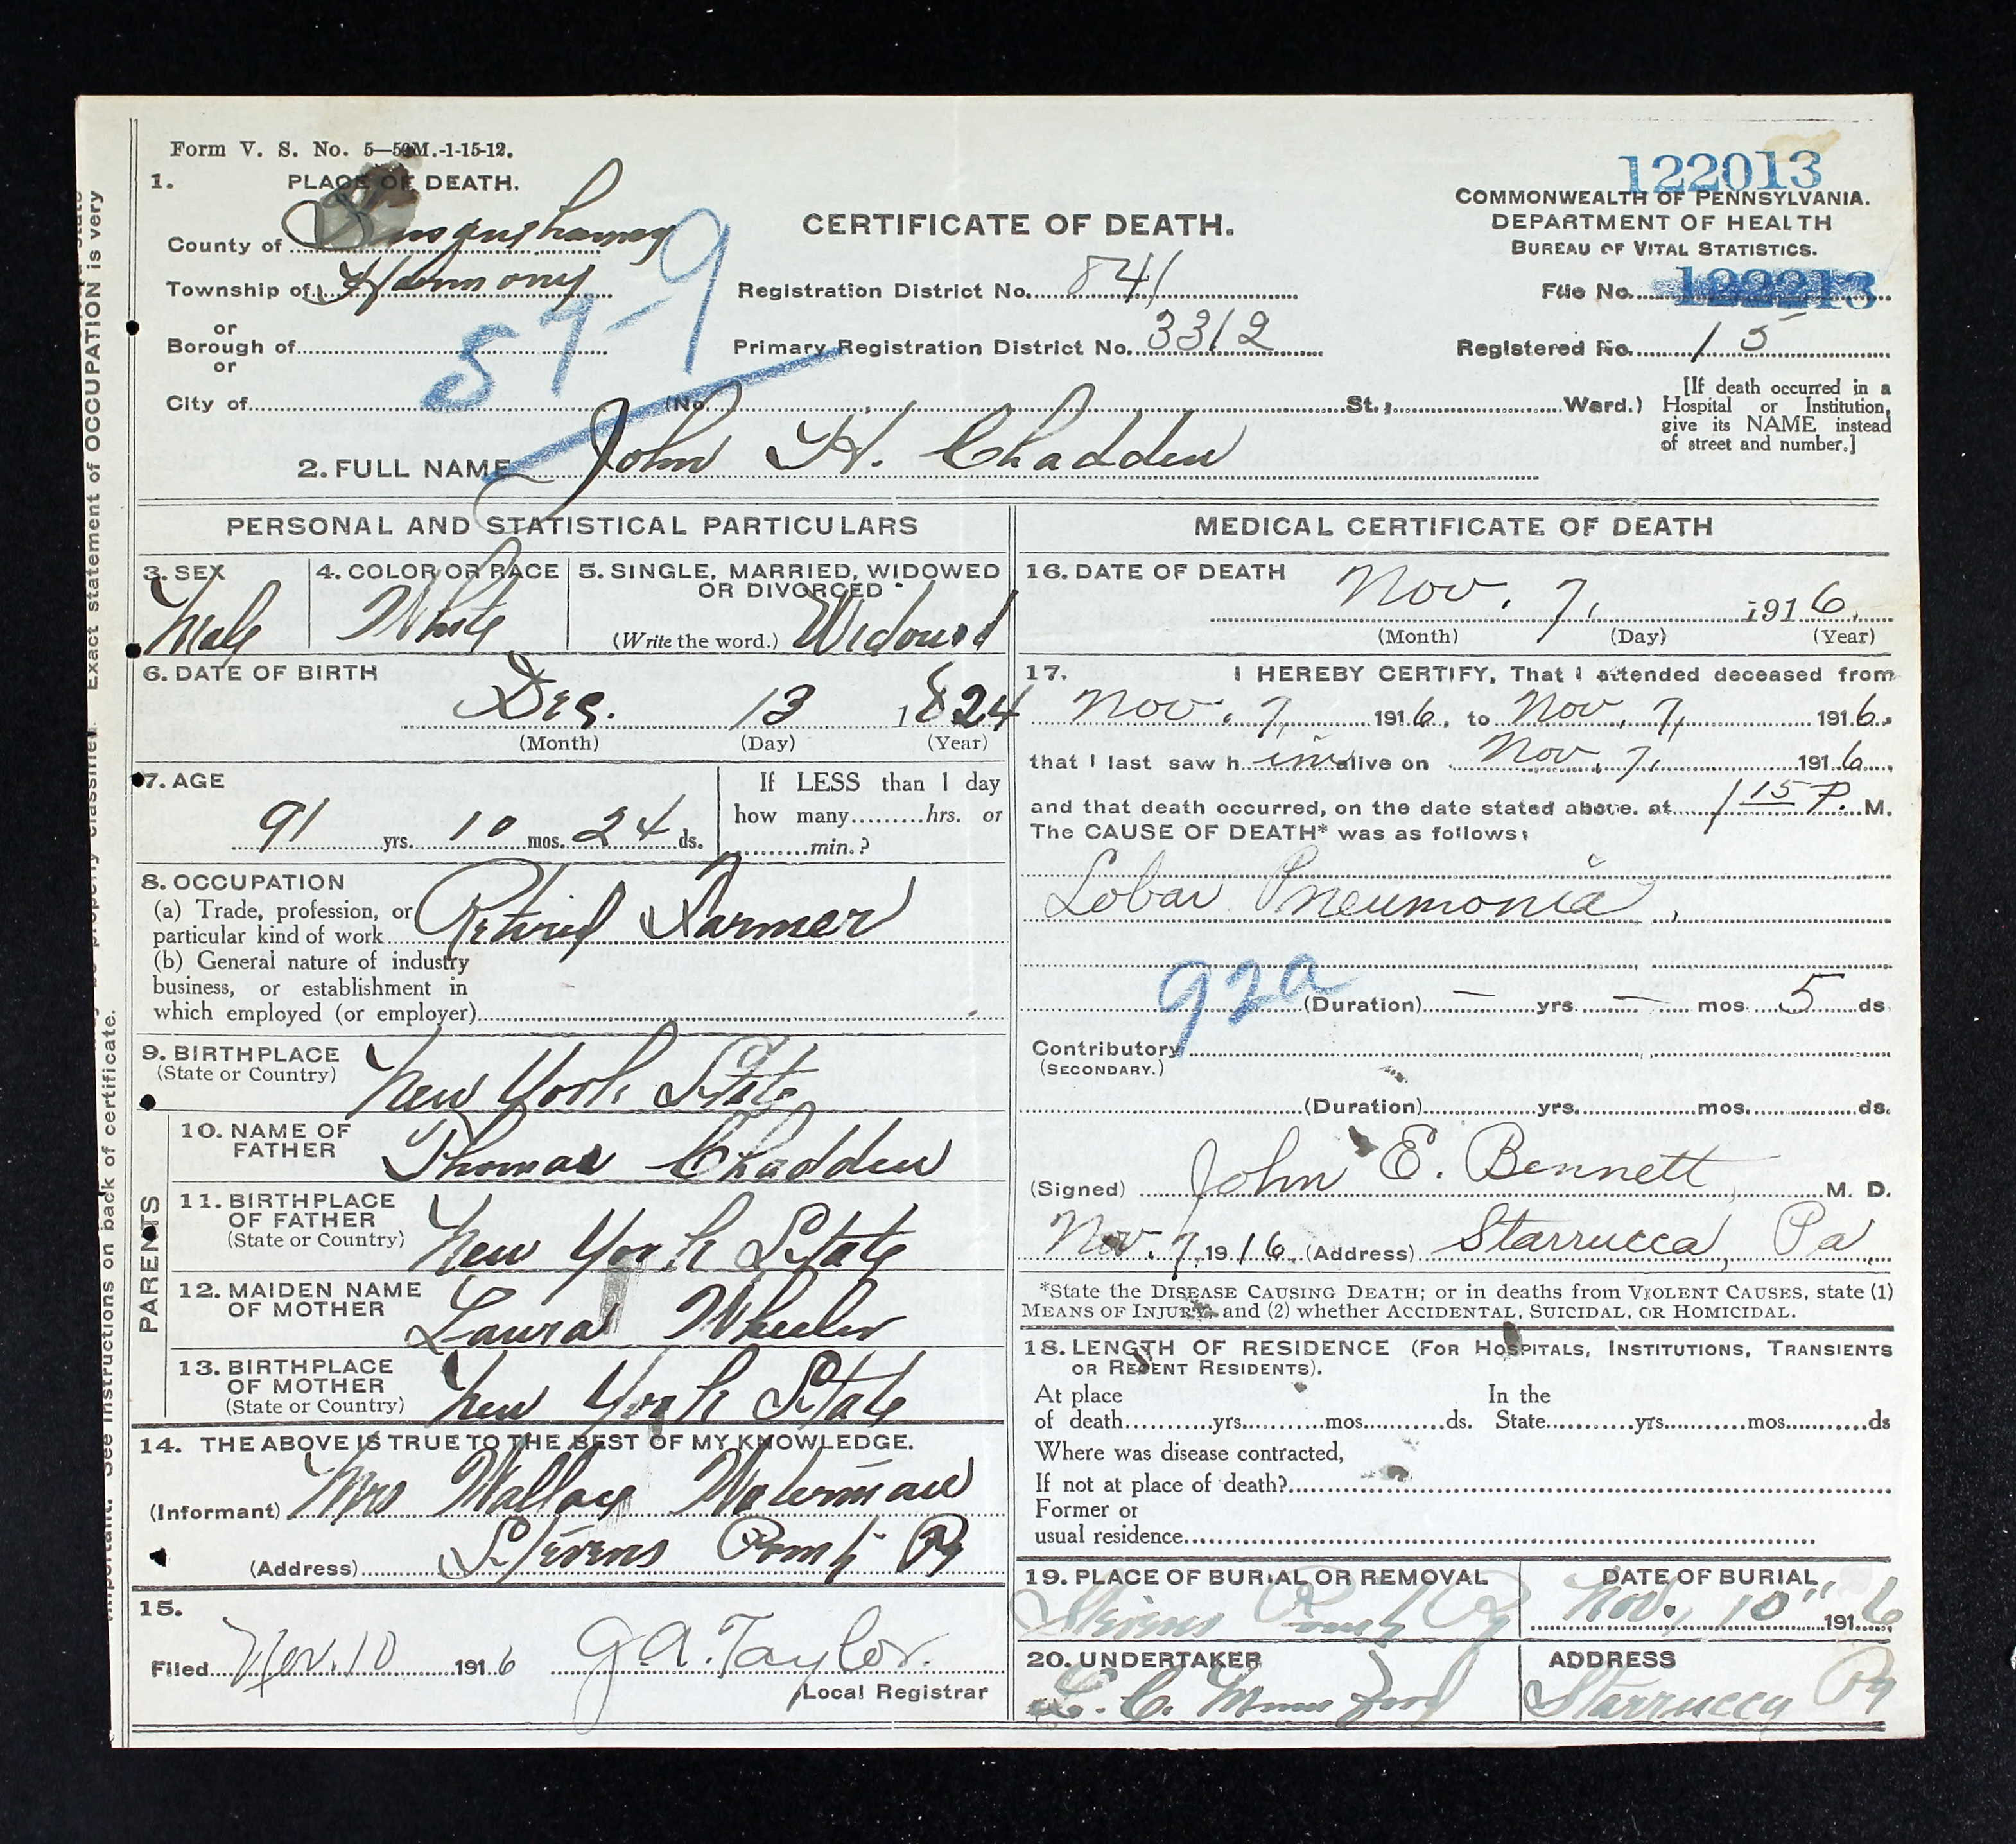 Form V. S. No. 5—50M.-1-15-12.
122013
1. PLACE OF DEATH.
COMMONWEALTH OF PENNSYLVANIA.
DEPARTMENT OF HEALTH
BUREAU OF VITAL STATISTICS.
CERTIFICATE OF DEATH.
County of Susquehanna
Township of Harmony
57-9
Registration District No. 841
File No. 122213
or
Borough of
Primary Registration District No. 3312
Registered No. 15
or
City of (No. St., Ward.)
[If death occurred in a
Hospital or Institution,
give its NAME instead
of street and number.]
2. FULL NAME John H. Chadden
PERSONAL AND STATISTICAL PARTICULARS
3. SEX Male
4. COLOR OR RACE White
5. SINGLE, MARRIED, WIDOWED
OR DIVORCED
(Write the word.) Widowed
6. DATE OF BIRTH
Dec. 13 1824
(Month) (Day) (Year)
7. AGE
91 yrs. 10 mos. 24 ds.
If LESS than 1 day
how many hrs. or
min.?
8. OCCUPATION
(a) Trade, profession, or
particular kind of work Retired Farmer
(b) General nature of industry
business, or establishment in
which employed (or employer)
9. BIRTHPLACE
(State or Country) New York State
PARENTS
10. NAME OF
FATHER Thomas Chadden
11. BIRTHPLACE
OF FATHER
(State or Country) New York State
12. MAIDEN NAME
OF MOTHER Laura Wheeler
13. BIRTHPLACE
OF MOTHER
(State or Country) New York State
14. THE ABOVE IS TRUE TO THE BEST OF MY KNOWLEDGE.
(Informant) Mrs Wallace Waterman
(Address) Stevens Point Pa
15.
Filed Nov. 10 1916 G A. Taylor.
Local Registrar
MEDICAL CERTIFICATE OF DEATH
16. DATE OF DEATH
Nov. 7, 1916.
(Month) (Day) (Year)
17. I HEREBY CERTIFY, That I attended deceased from
Nov. 7, 1916, to Nov, 7, 1916.
that I last saw him alive on Nov. 7, 1916
and that death occurred, on the date stated above, at 1 15 P. M.
The CAUSE OF DEATH* was as follows:
Lobar Pneumonia,
92a
(Duration) — yrs. — mos 5 ds
Contributory
(SECONDARY.)
(Duration) yrs. mos. ds.
(Signed) John E. Bennett, M. D.
Nov. 7, 1916 (Address) Starrucca, Pa
*State the DISEASE CAUSING DEATH; or in deaths from VIOLENT CAUSES, state (1)
MEANS OF INJURY and (2) whether ACCIDENTAL, SUICIDAL, OR HOMICIDAL.
18. LENGTH OF RESIDENCE (FOR HOSPITALS, INSTITUTIONS, TRANSIENTS
OR RECENT RESIDENTS).
At place In the
of death yrs. mos. ds. State yrs. mos. ds
Where was disease contracted,
If not at place of death?
Former or
usual residence
19. PLACE OF BURIAL OR REMOVAL
Stevens Point Pa
DATE OF BURIAL
Nov. 10" 1916
20. UNDERTAKER
ADDRESS
Starrucca Pa
Exact statement of OCCUPATION is very
important. See instructions on back of certificate.